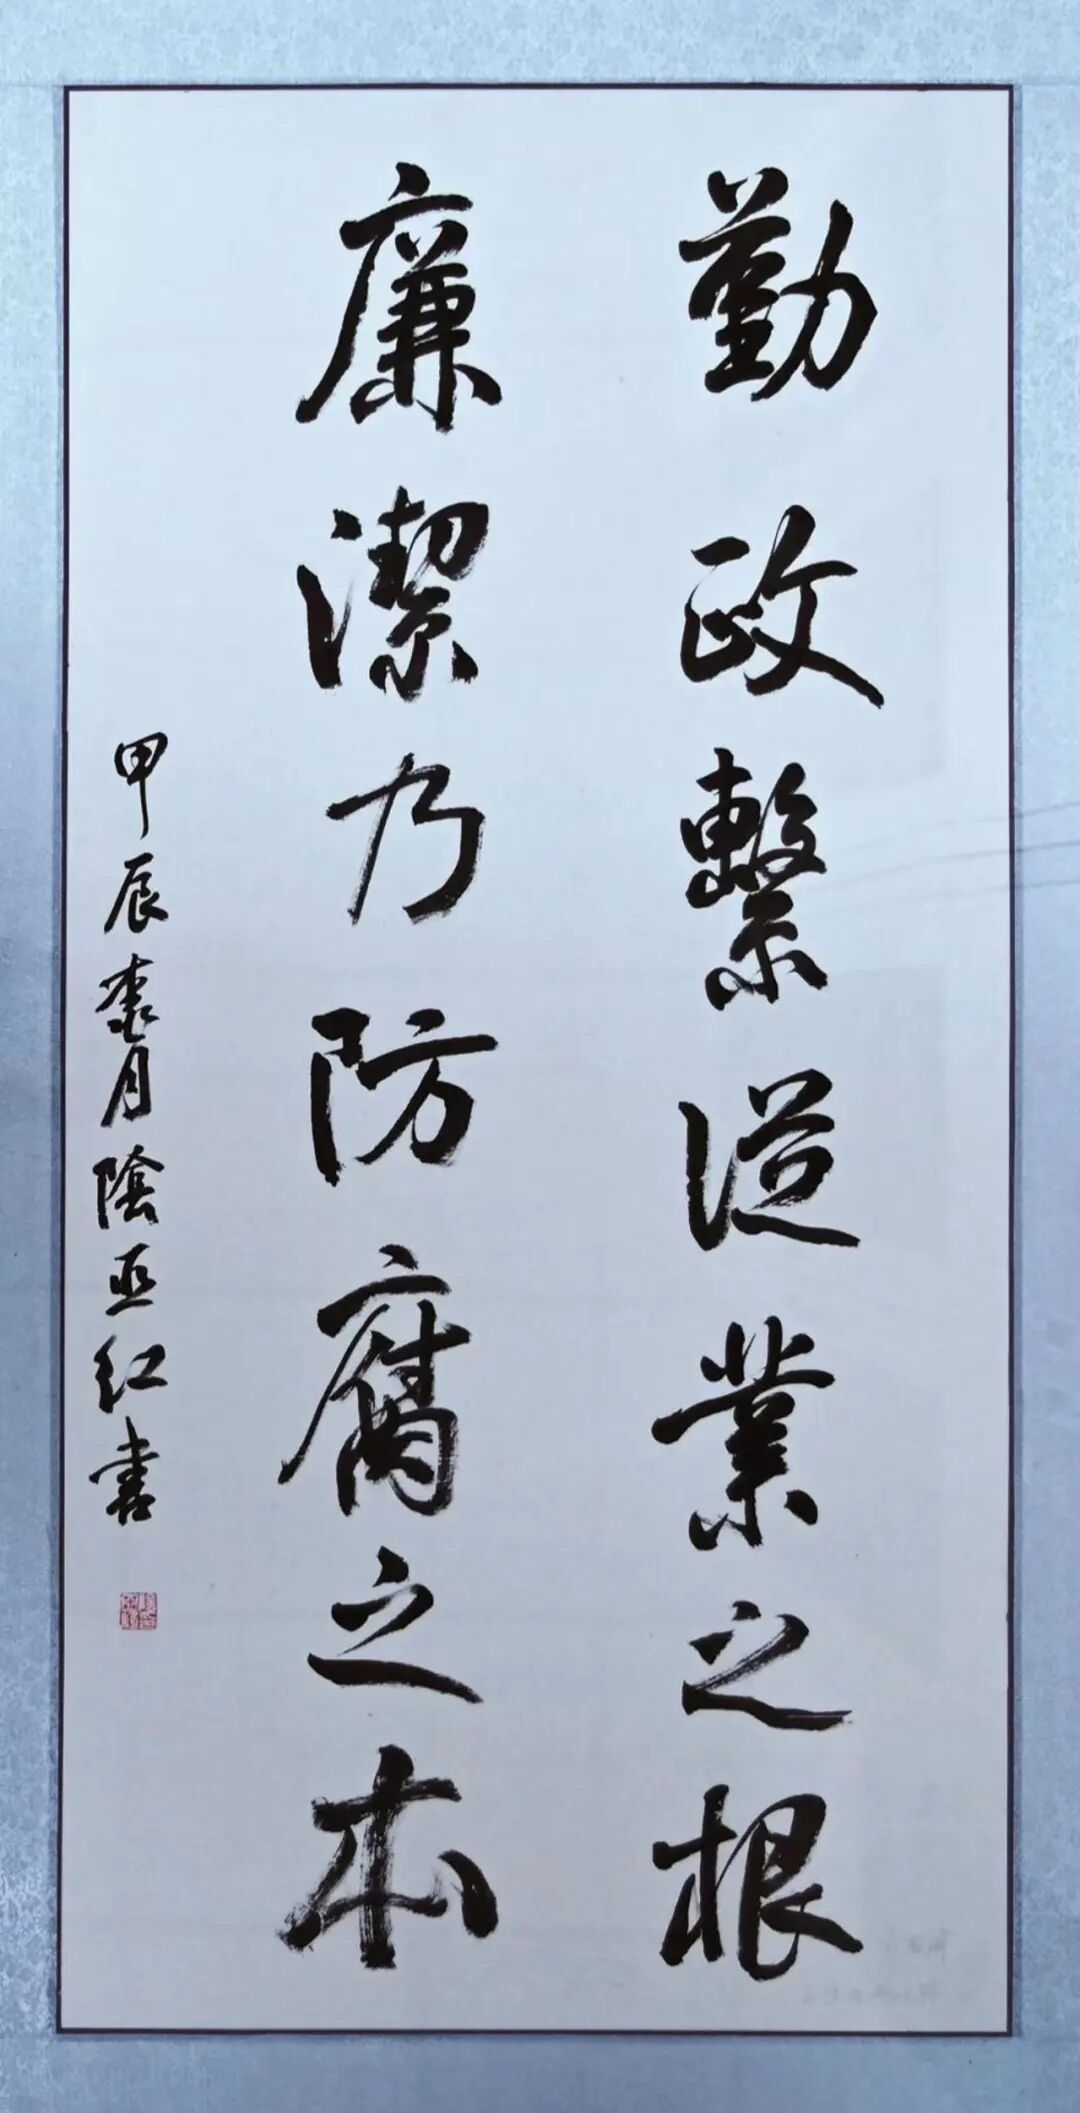 勤政繫從業之根
廉潔乃防腐之本
甲辰月陰亚红書